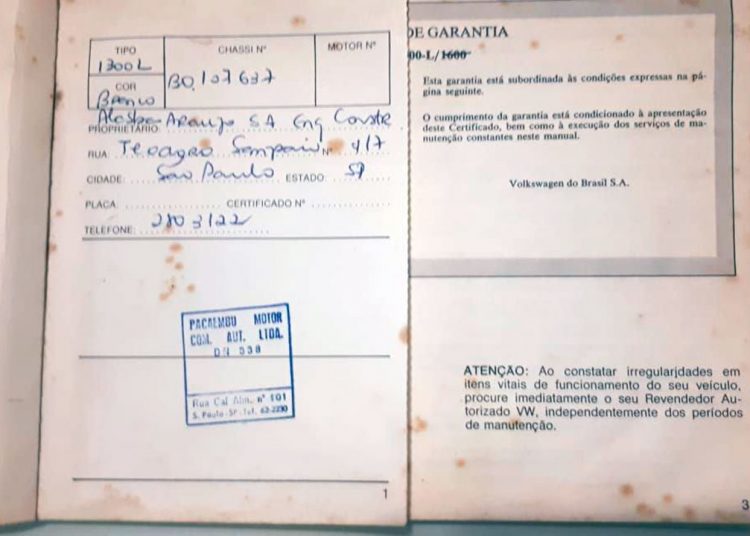 TIPO
1300L
CHASSI Nº
MOTOR Nº
COR
Branco
BO.107637
Araujo SA Eng Constr
PROPRIETÁRIO:
RUA: Teodoro Sampaio Nº 417
CIDADE: São Paulo ESTADO: SP
PLACA: CERTIFICADO Nº
TELEFONE: 2803122
PACAEMBU MOTOR
COM. AUT. LTDA.
DN 338
Rua Cal Alm. nº 101
S. Paulo - SP - Tel. 62-2230
1
DE GARANTIA
00-L/1600
Esta garantia está subordinada às condições expressas na pá-
gina seguinte.
O cumprimento da garantia está condicionado à apresentação
deste Certificado, bem como à execução dos serviços de ma-
nutenção constantes neste manual.
Volkswagen do Brasil S.A.
ATENÇÃO: Ao constatar irregularidades em
itens vitais de funcionamento do seu veículo,
procure imediatamente o seu Revendedor Au-
torizado VW, independentemente dos períodos
de manutenção.
3